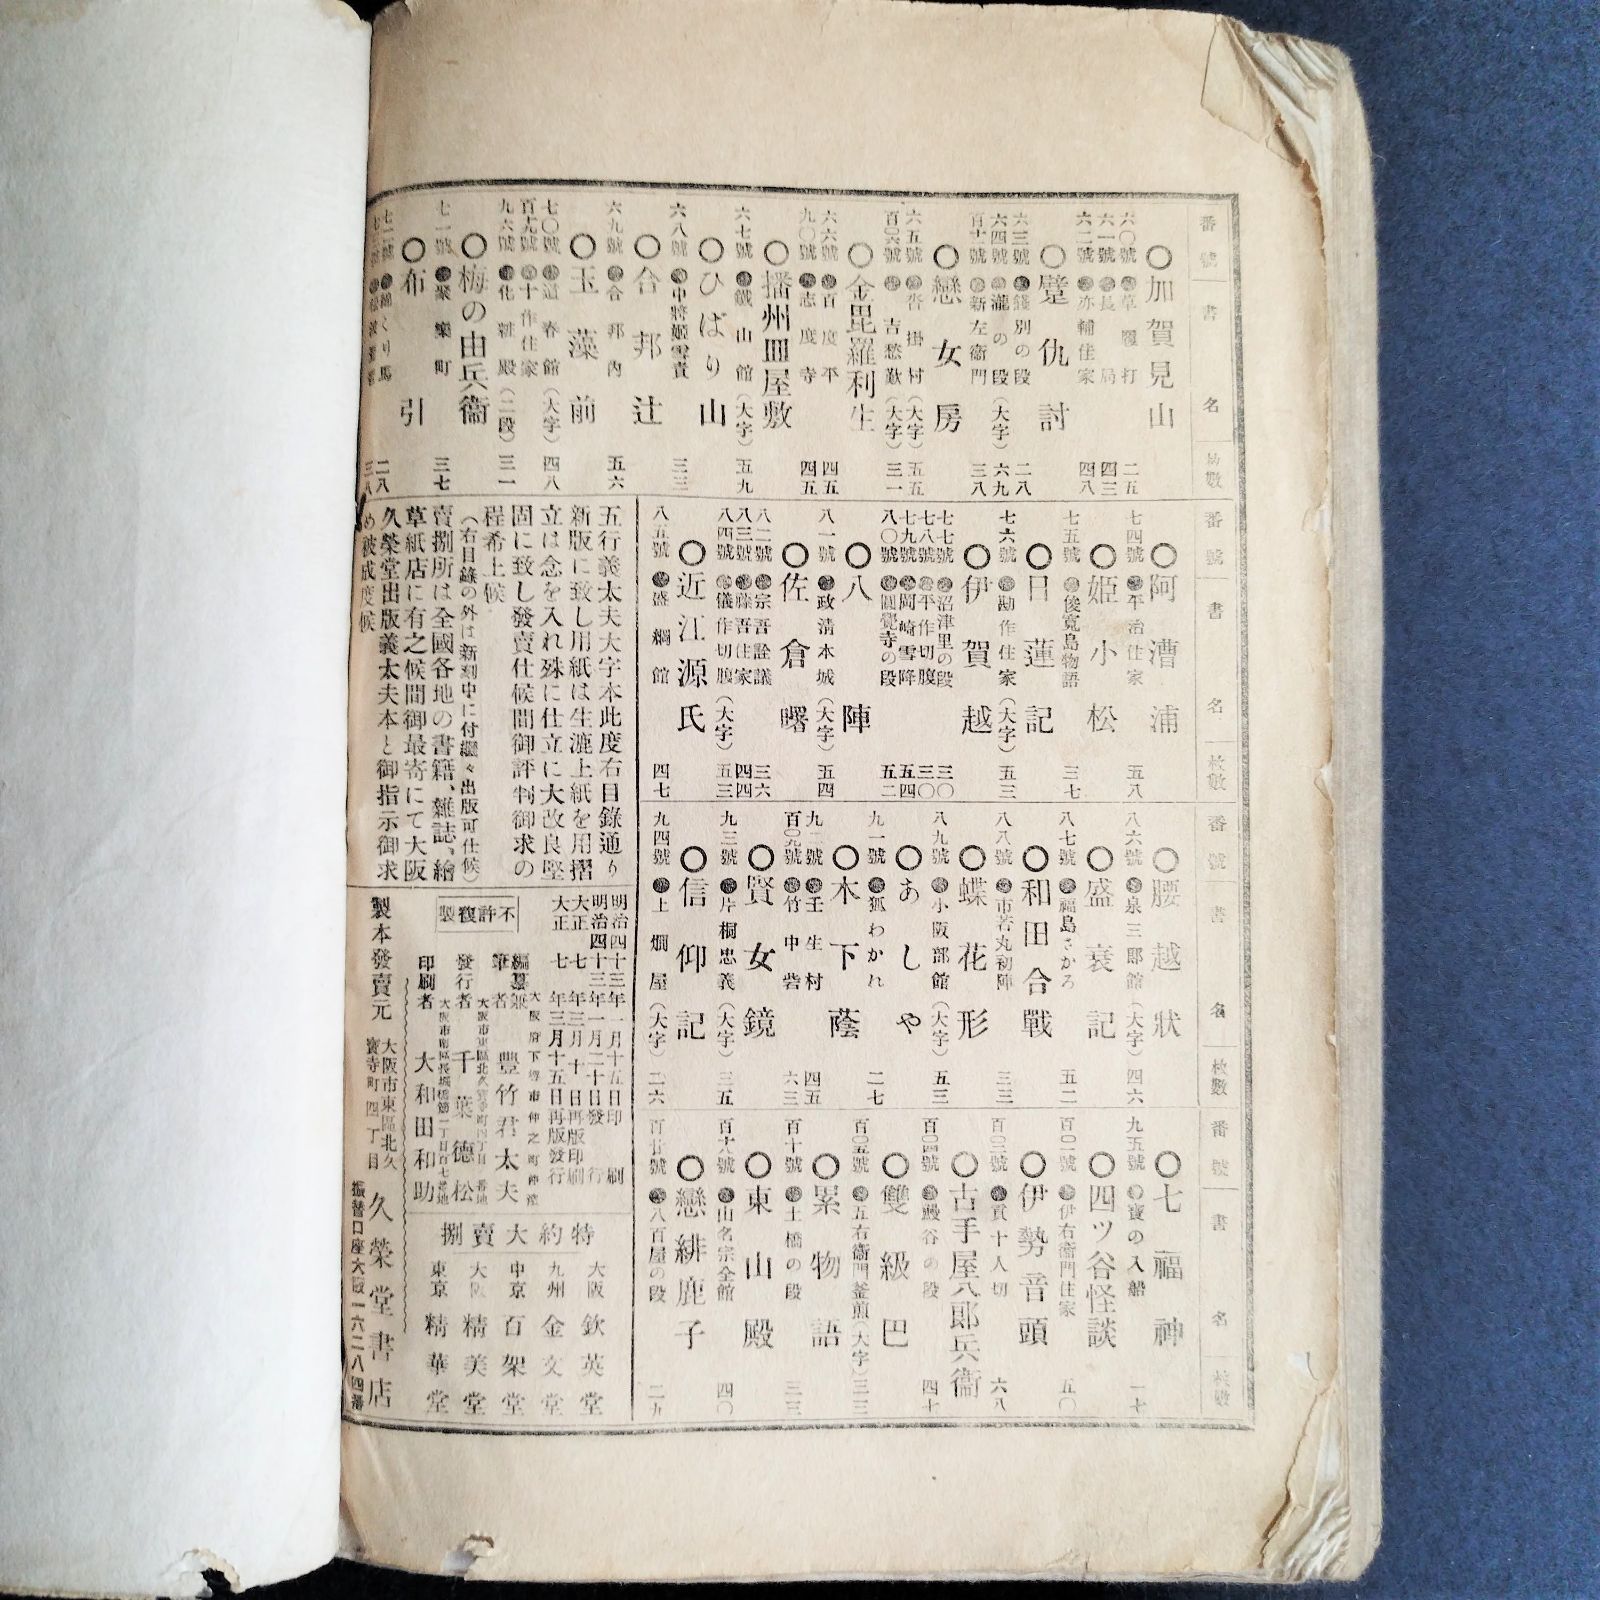 番號 書名 數
○加賀見山
六〇號 草履打 二五
六一號 長局 四三
六二號 亦輔住家 四八
○躄仇討
六三號 餞別の段 二八
六四號 瀧の段(大字) 六九
新左衞門 三八
○戀女房
六五號 沓掛村(大字) 五五
百〇六號 吉愁歎(大字) 三一
○金毘羅利生
六六號 百度平 四五
九〇號 志度寺 四五
○播州皿屋敷
六七號 鐵山館(大字) 五九
○ひばり山
六八號 中將姬雪責 三三
○合邦辻
六九號 合邦內 五六
○玉藻前
七〇號 道春館(大字) 四八
十作住家
九六號 化粧殿(二段) 三一
○梅の由兵衞
七一號 聚樂町 三七
○布引
七二號 綿くり馬 二八
三八
番號 書名 枚數
○阿漕浦
七四號 平治住家 五八
○姬小松
七五號 俊寬島物語 三七
○日蓮記
七六號 勘作住家(大字) 五三
○伊賀越
七七號 沼津里の段 三〇
七八號 平作切腹 三〇
七九號 岡崎雪降 五四
八〇號 圓覺寺の段 五二
○八陣
八一號 政淸本城(大字) 五四
○佐倉曙
八二號 宗吾詮議 三六
八三號 藤吾住家 四四
八四號 儀作切腹(大字) 五三
○近江源氏
八五號 盛綱館 四七
番號 書名 枚數
○腰越狀
八六號 泉三郎館(大字) 四六
○盛衰記
八七號 福島さかろ 五二
○和田合戰
八八號 市若丸初陣 三三
○蝶花形
八九號 小阪部館(大字) 五三
○あしや
九一號 狐わかれ 二七
○木下蔭
壬生村 四五
百〇九號 竹中砦 六三
○賢女鏡
九三號 片桐忠義(大字) 三五
○信仰記
九四號 上燗屋(大字) 二六
番號 書名 枚數
○七福神
九五號 寶の入船 一七
○四ツ谷怪談
伊右衞門住家 五〇
○伊勢音頭
百〇三號 貢十人切 六八
○古手屋八郎兵衞
百〇四號 鰻谷の段 四十
○雙級巴
百〇五號 五右衞門釜煎(大字) 三三
○累物語
百十號 土橋の段 三三
○東山殿
山名宗全館 四〇
○戀緋鹿子
百廿號 八百屋の段 二九
五行義太夫大字本此度右目錄通り
新版に致し用紙は生漉上紙を用摺
立は念を入れ殊に仕立に大改良堅
固に致し發賣仕候間御評判御求の
程希上候
(右目錄の外は新刻中に付繼々出版可仕候)
賣捌所は全國各地の書籍、雜誌、繪
草紙店に有之候間御最寄にて大阪
久榮堂出版義太夫本と御指示御求
め被成度候
明治四十三年一月十五日印刷
明治四十三年一月二十日發行
大正七年三月十日再版印刷
大正七年三月十五日再版發行
不許複製
編輯兼筆者 豐竹君太夫
發行者 千葉德松
印刷者 大和田和助
製本發賣元 大阪市東區北久寶寺町四丁目 久榮堂書店
振替口座大阪一六二八四番
特約大賣捌
大阪 欽英堂
九州 金文堂
中京 百架堂
大阪 精美堂
東京 精華堂